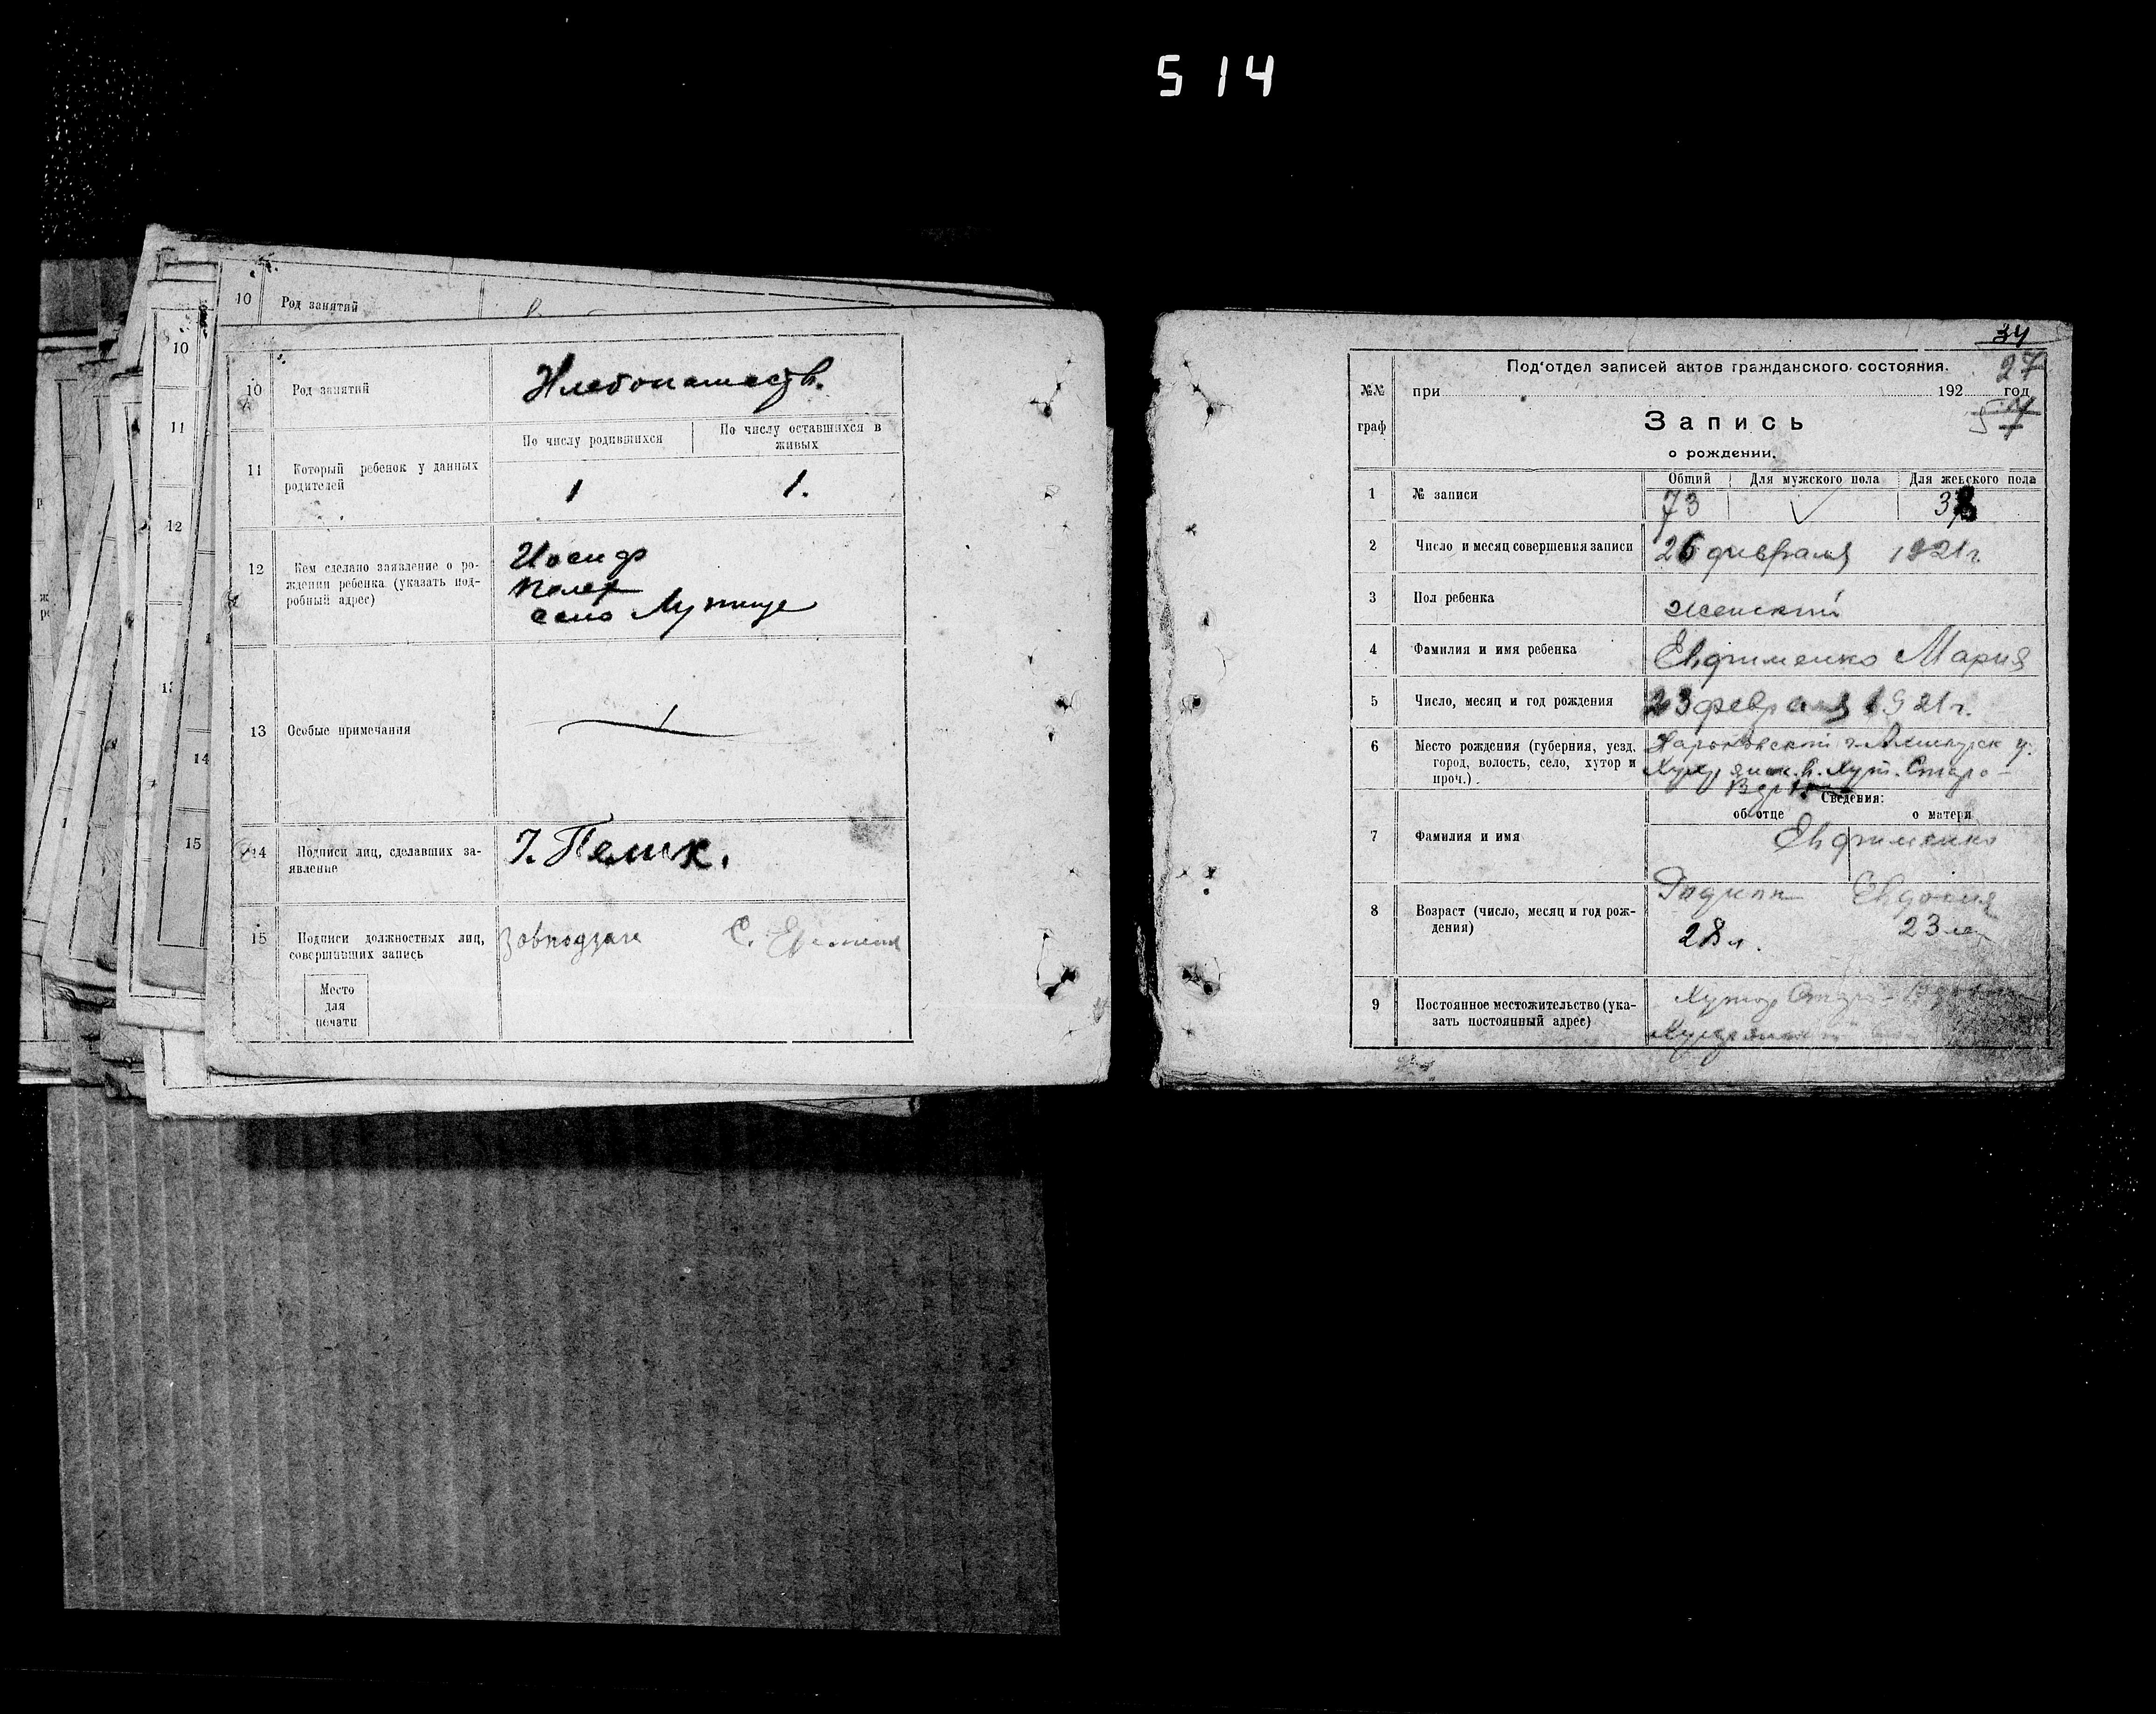 514
10 Род занятий
10
11
12
14
15
10 Род занятий Хлебопашеств.
По числу родившихся По числу оставшихся в
живых
11 Который ребенок у данных
родителей
1 1.
12 Кем сделано заявление о ро-
ждении ребенка (указать под-
робный адрес)
Иосиф
село
13 Особые примечания
14 Подписи лиц, сделавших за-
явление
15 Подписи должностных лиц,
совершивших запись
Завподзаге С.
Место
для
печати
34
27
Под'отдел записей актов гражданского состояния.
№№
граф
при 192 год
Запись
о рождении.
Общий Для мужского пола Для женского пола
1 № записи 73
2 Число и месяц совершения записи 26 февраля 1921г.
3 Пол ребенка женский
4 Фамилия и имя ребенка Евфименко Мария
5 Число, месяц и год рождения 23 февраля 1921г.
6 Место рождения (губерния, уезд,
город, волость, село, хутор и
проч.).
Харьковской г. у.
Хут. Старо-
Сведения:
об отце о матери
7 Фамилия и имя Евфименко
Евдокия
8 Возраст (число, месяц и год рож-
дения)
28 л. 23 лет
9 Постоянное местожительство (ука-
зать постоянный адрес)
Хутор Старо-